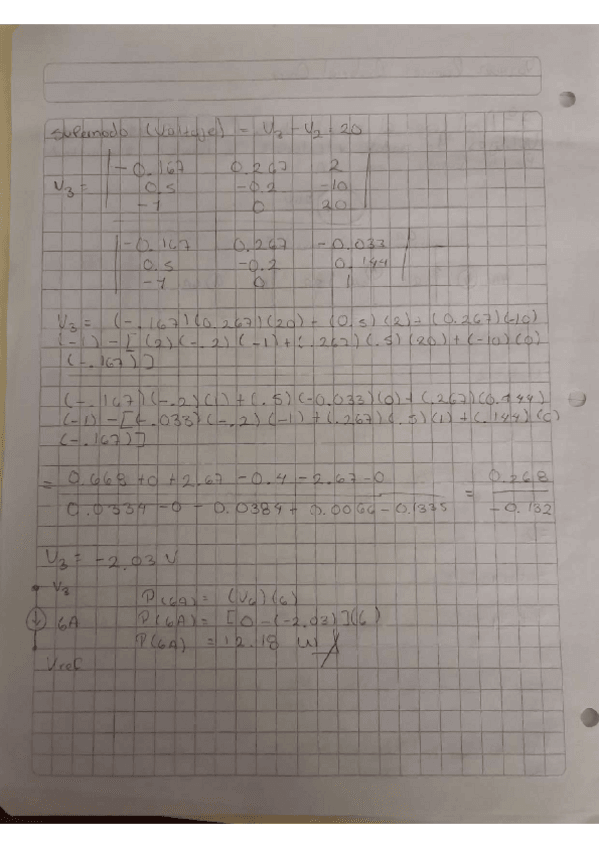 supernodo (voltaje) = V3 - V2 = 20
V3 =
| -0.167 0.267 2 |
| 0.5 -0.2 -10 |
| -1 0 20 |
| -0.167 0.267 -0.033 |
| 0.5 -0.2 0.144 |
| -1 0 1 |
V3 = (-.167)(0.267)(20) + (0.5)(2) + (0.267)(-10)
(-1) - [(2)(-.2)(-1) + (.267)(.5)(20) + (-10)(0)
(-.167)]
(-.167)(-.2)(1) + (.5)(-0.033)(0) + (.267)(0.144)
(-1) - [(-.033)(-.2)(-1) + (.267)(.5)(1) + (.144)(0)
(-.167)]
= 0.668 + 0 + 2.67 - 0.4 - 2.67 - 0 = 0.268
0.0334 - 0 - 0.0384 + 0.0066 - 0.1335 -0.132
V3 = -2.03 V
V3
P(6A) = (V6)(6)
6A P(6A) = [0 - (-2.03)](6)
P(6A) = 12.18 W
Vref